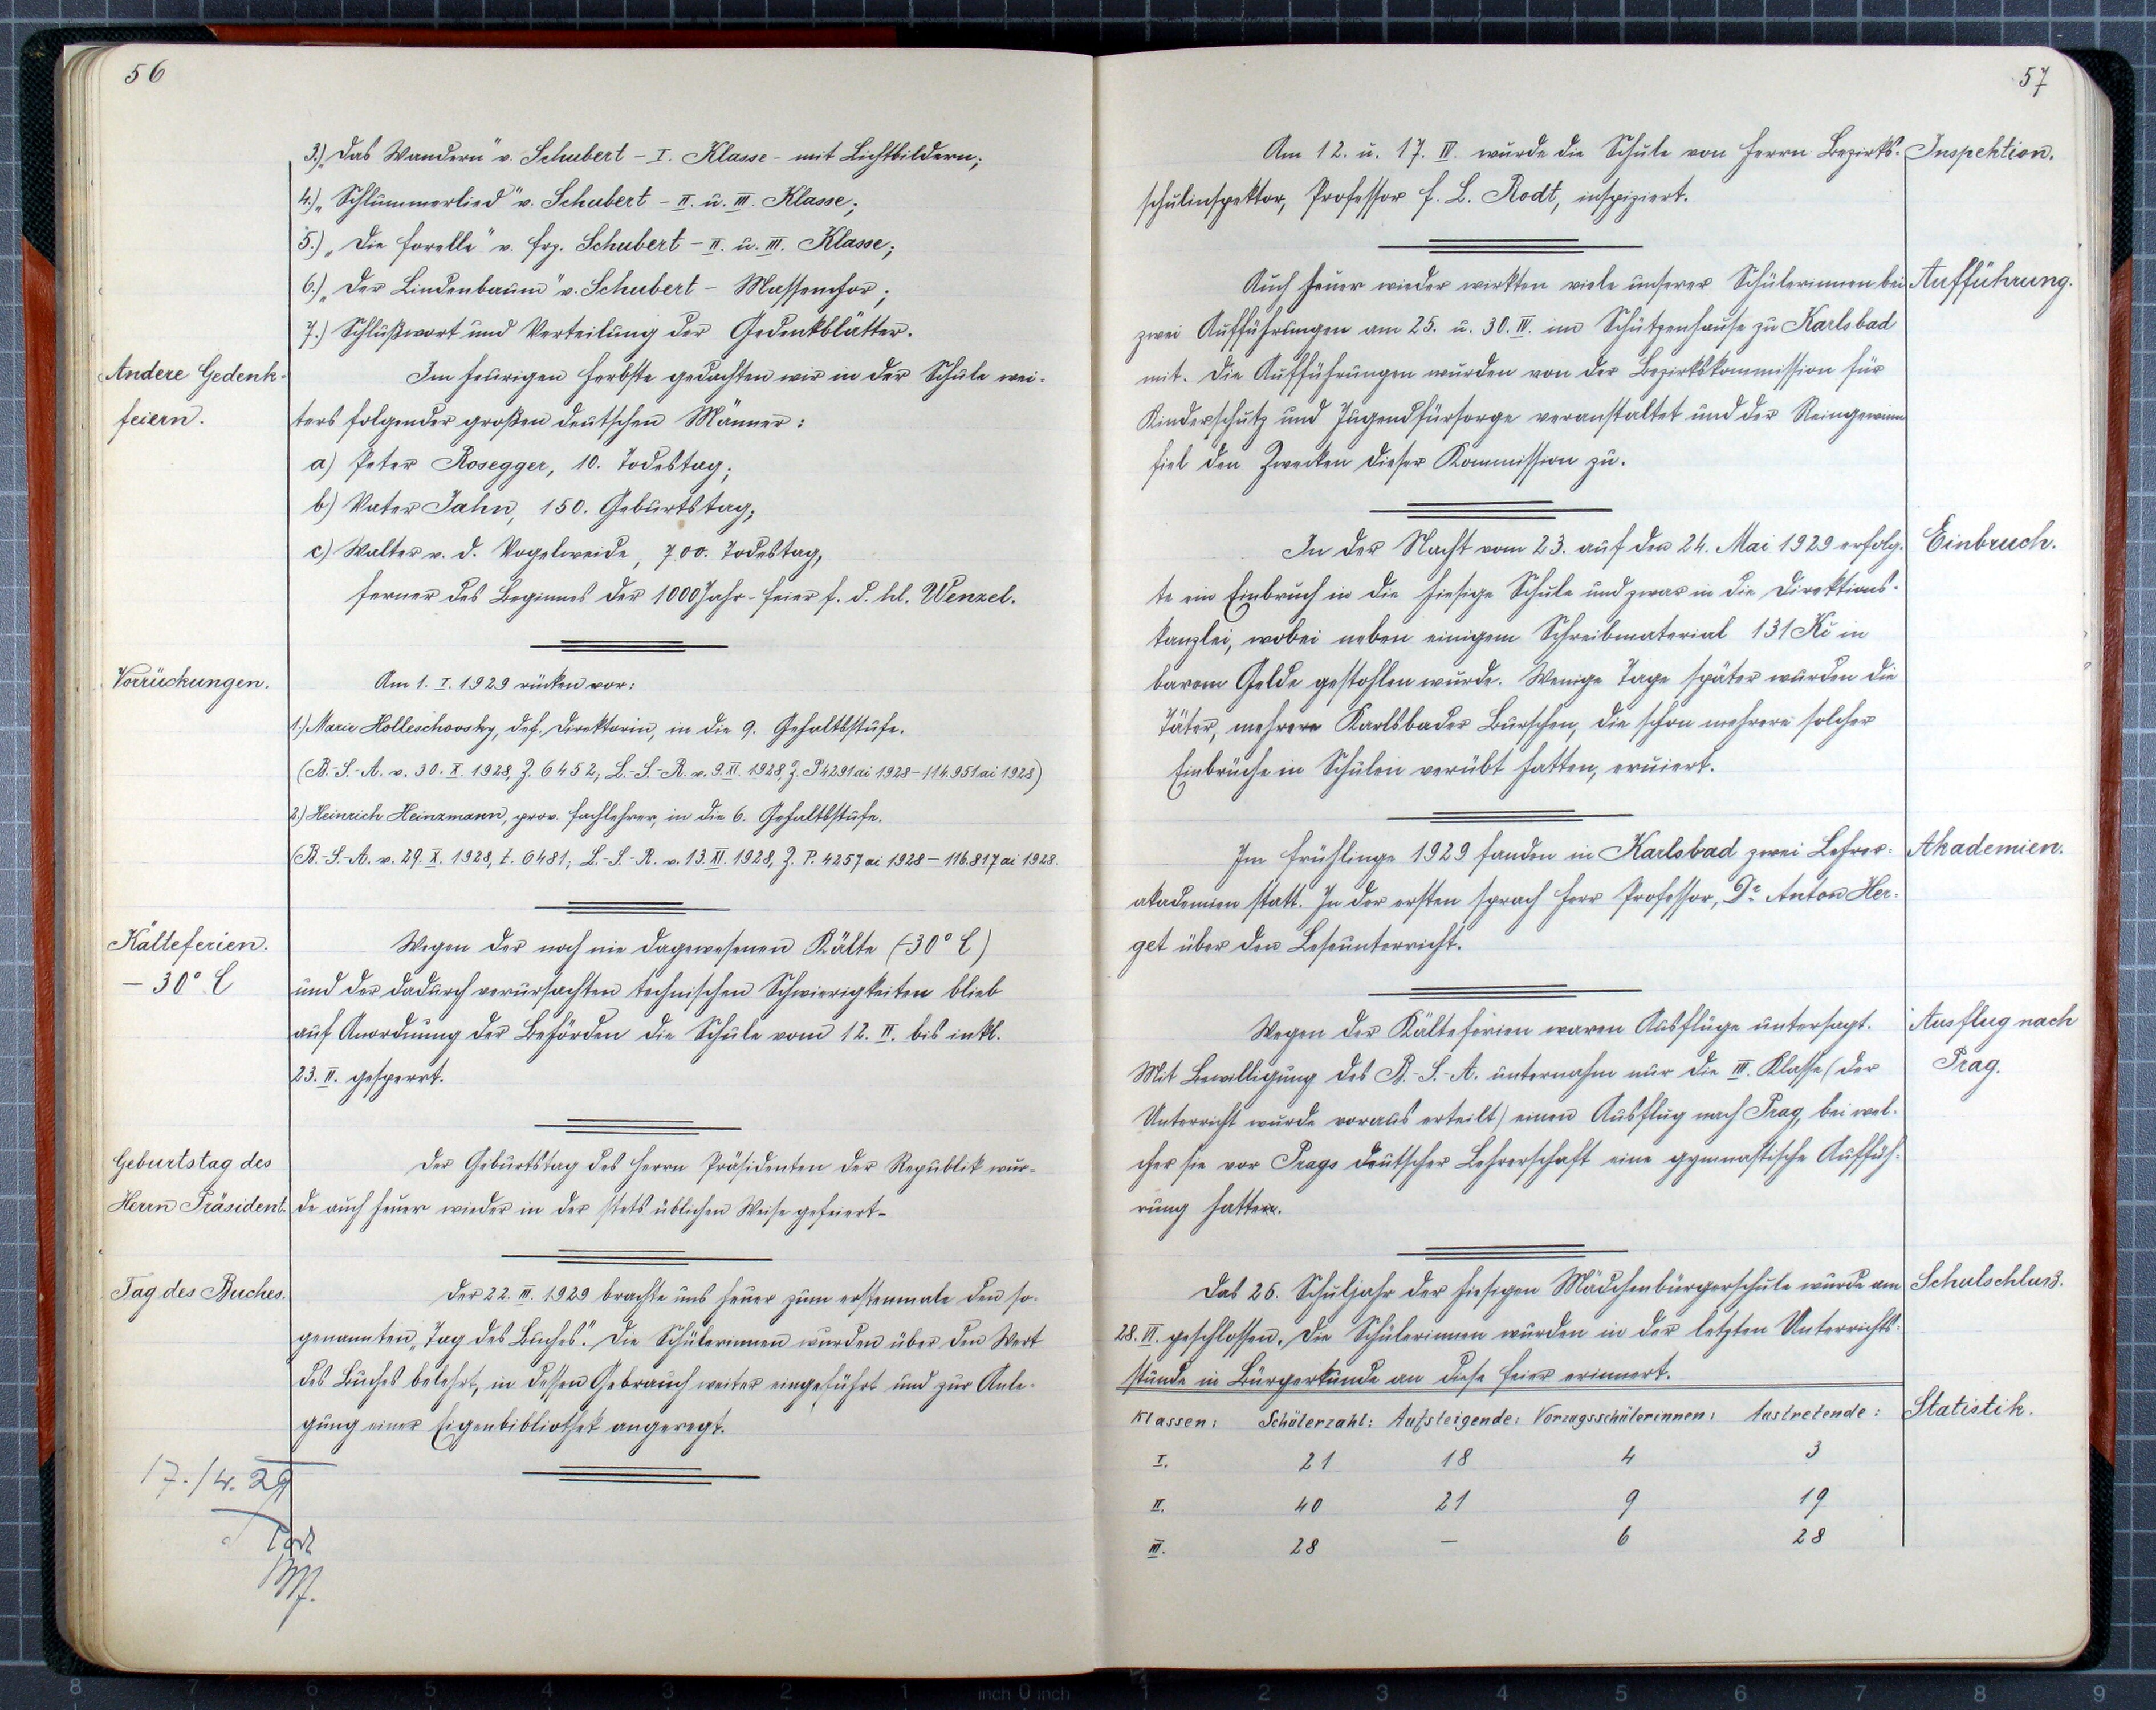 56
3.) „Das Wandern" v. Schubert – I. Klasse – mit Lichtbildern;
4.) „Schlummerlied" v. Schubert – II. u. III. Klasse;
5.) „Die Forelle" v. Frz. Schubert – II. u. III. Klasse;
6.) „Der Lindenbaum" v. Schubert – Massenchor;
7.) Schlußwort und Verteilung der Gedenkblätter.
Andere Gedenk-
feiern.
Im heurigen Herbste gedachten wir in der Schule wei-
ters folgender großen deutschen Männer:
a) Peter Rosegger, 10. Todestag;
b) Vater Jahn, 150. Geburtstag;
c) Walter v. d. Vogelweide, 700. Todestag,
ferner des Beginnes der 1000 Jahr-Feier f. d. hl. Wenzel.
Vorrückungen.
Am 1. I. 1929 rücken vor:
1.) Marie Holleschovsky, def. Direktorin, in die 9. Gehaltsstufe.
(B.-S.-A. v. 30. X. 1928, Z. 6452; L.-S.-R. v. 9. XI. 1928, Z. P 4291 ai 1928 – 114.951 ai 1928)
2.) Heinrich Heinzmann, prov. Fachlehrer, in die 6. Gehaltsstufe.
(B.-S.-A. v. 29. X. 1928, Z. 6481; L.-S.-R. v. 13. XI. 1928, Z. P. 4257 ai 1928 – 116.817 ai 1928.
Kälteferien.
– 30° C
Wegen der noch nie dagewesenen Kälte (-30° C)
und der dadurch verursachten technischen Schwierigkeiten blieb
auf Anordnung der Behörden die Schule vom 12. II. bis inkl.
23. II. gesperrt.
Geburtstag des
Herrn Präsident.
Der Geburtstag des Herrn Präsidenten der Republik wur-
de auch heuer wieder in der stets üblichen Weise gefeiert.
Tag des Buches.
Der 22. III. 1929 brachte uns heuer zum erstenmale den so-
genannten „Tag des Buches". Die Schülerinnen wurden über den Wert
des Buches belehrt, in dessen Gebrauch weiter eingeführt und zur Anle-
gung einer Eigenbibliothek angeregt.
17./4. 29
57
Am 12. u. 17. IV. wurde die Schule von Herrn Bezirks-
schulinspektor, Professor F. L. Rodt, inspiziert.
Inspektion.
Auch heuer wieder wirkten viele unserer Schülerinnen bei
zwei Aufführungen am 25. u. 30. IV. im Schützenhause zu Karlsbad
mit. Die Aufführungen wurden von der Bezirkskommission für
Kinderschutz und Jugendfürsorge veranstaltet und der Reingewinn
fiel den Zwecken dieser Kommission zu.
Aufführung.
In der Nacht vom 23. auf den 24. Mai 1929 erfolg-
te ein Einbruch in die hiesige Schule und zwar in die Direktions-
kanzlei, wobei neben einigem Schreibmaterial 131 Kč in
barem Gelde gestohlen wurde. Wenige Tage später wurden die
Täter, mehrere Karlsbader Burschen, die schon mehrere solcher
Einbrüche in Schulen verübt hatten, eruiert.
Einbruch.
Im Frühlinge 1929 fanden in Karlsbad zwei Lehrer-
akademien statt. In der ersten sprach Herr Professor, Dr. Anton Her-
get über den Leseunterricht.
Akademien.
Wegen der Kälteferien waren Ausflüge untersagt.
Mit Bewilligung des B.-S.-A. unternahm nur die III. Klasse (der
Unterricht wurde voraus erteilt) einen Ausflug nach Prag, bei wel-
cher sie vor Prags deutscher Lehrerschaft eine gymnastische Auffüh-
rung hatten.
Ausflug nach
Prag.
Das 25. Schuljahr der hiesigen Mädchenbürgerschule wurde am
28. VI. geschlossen. Die Schülerinnen wurden in der letzten Unterrichts-
stunde in Bürgerkunde an diese Feier erinnert.
Schulschluss.
Klassen: Schülerzahl: Aufsteigende: Vorzugsschülerinnen: Austretende:
Statistik.
I. 21 18 4 3
II. 40 21 9 19
III. 28 – 6 28
8 7 6 5 4 3 2 1 inch 0 inch 1 2 3 4 5 6 7 8 9